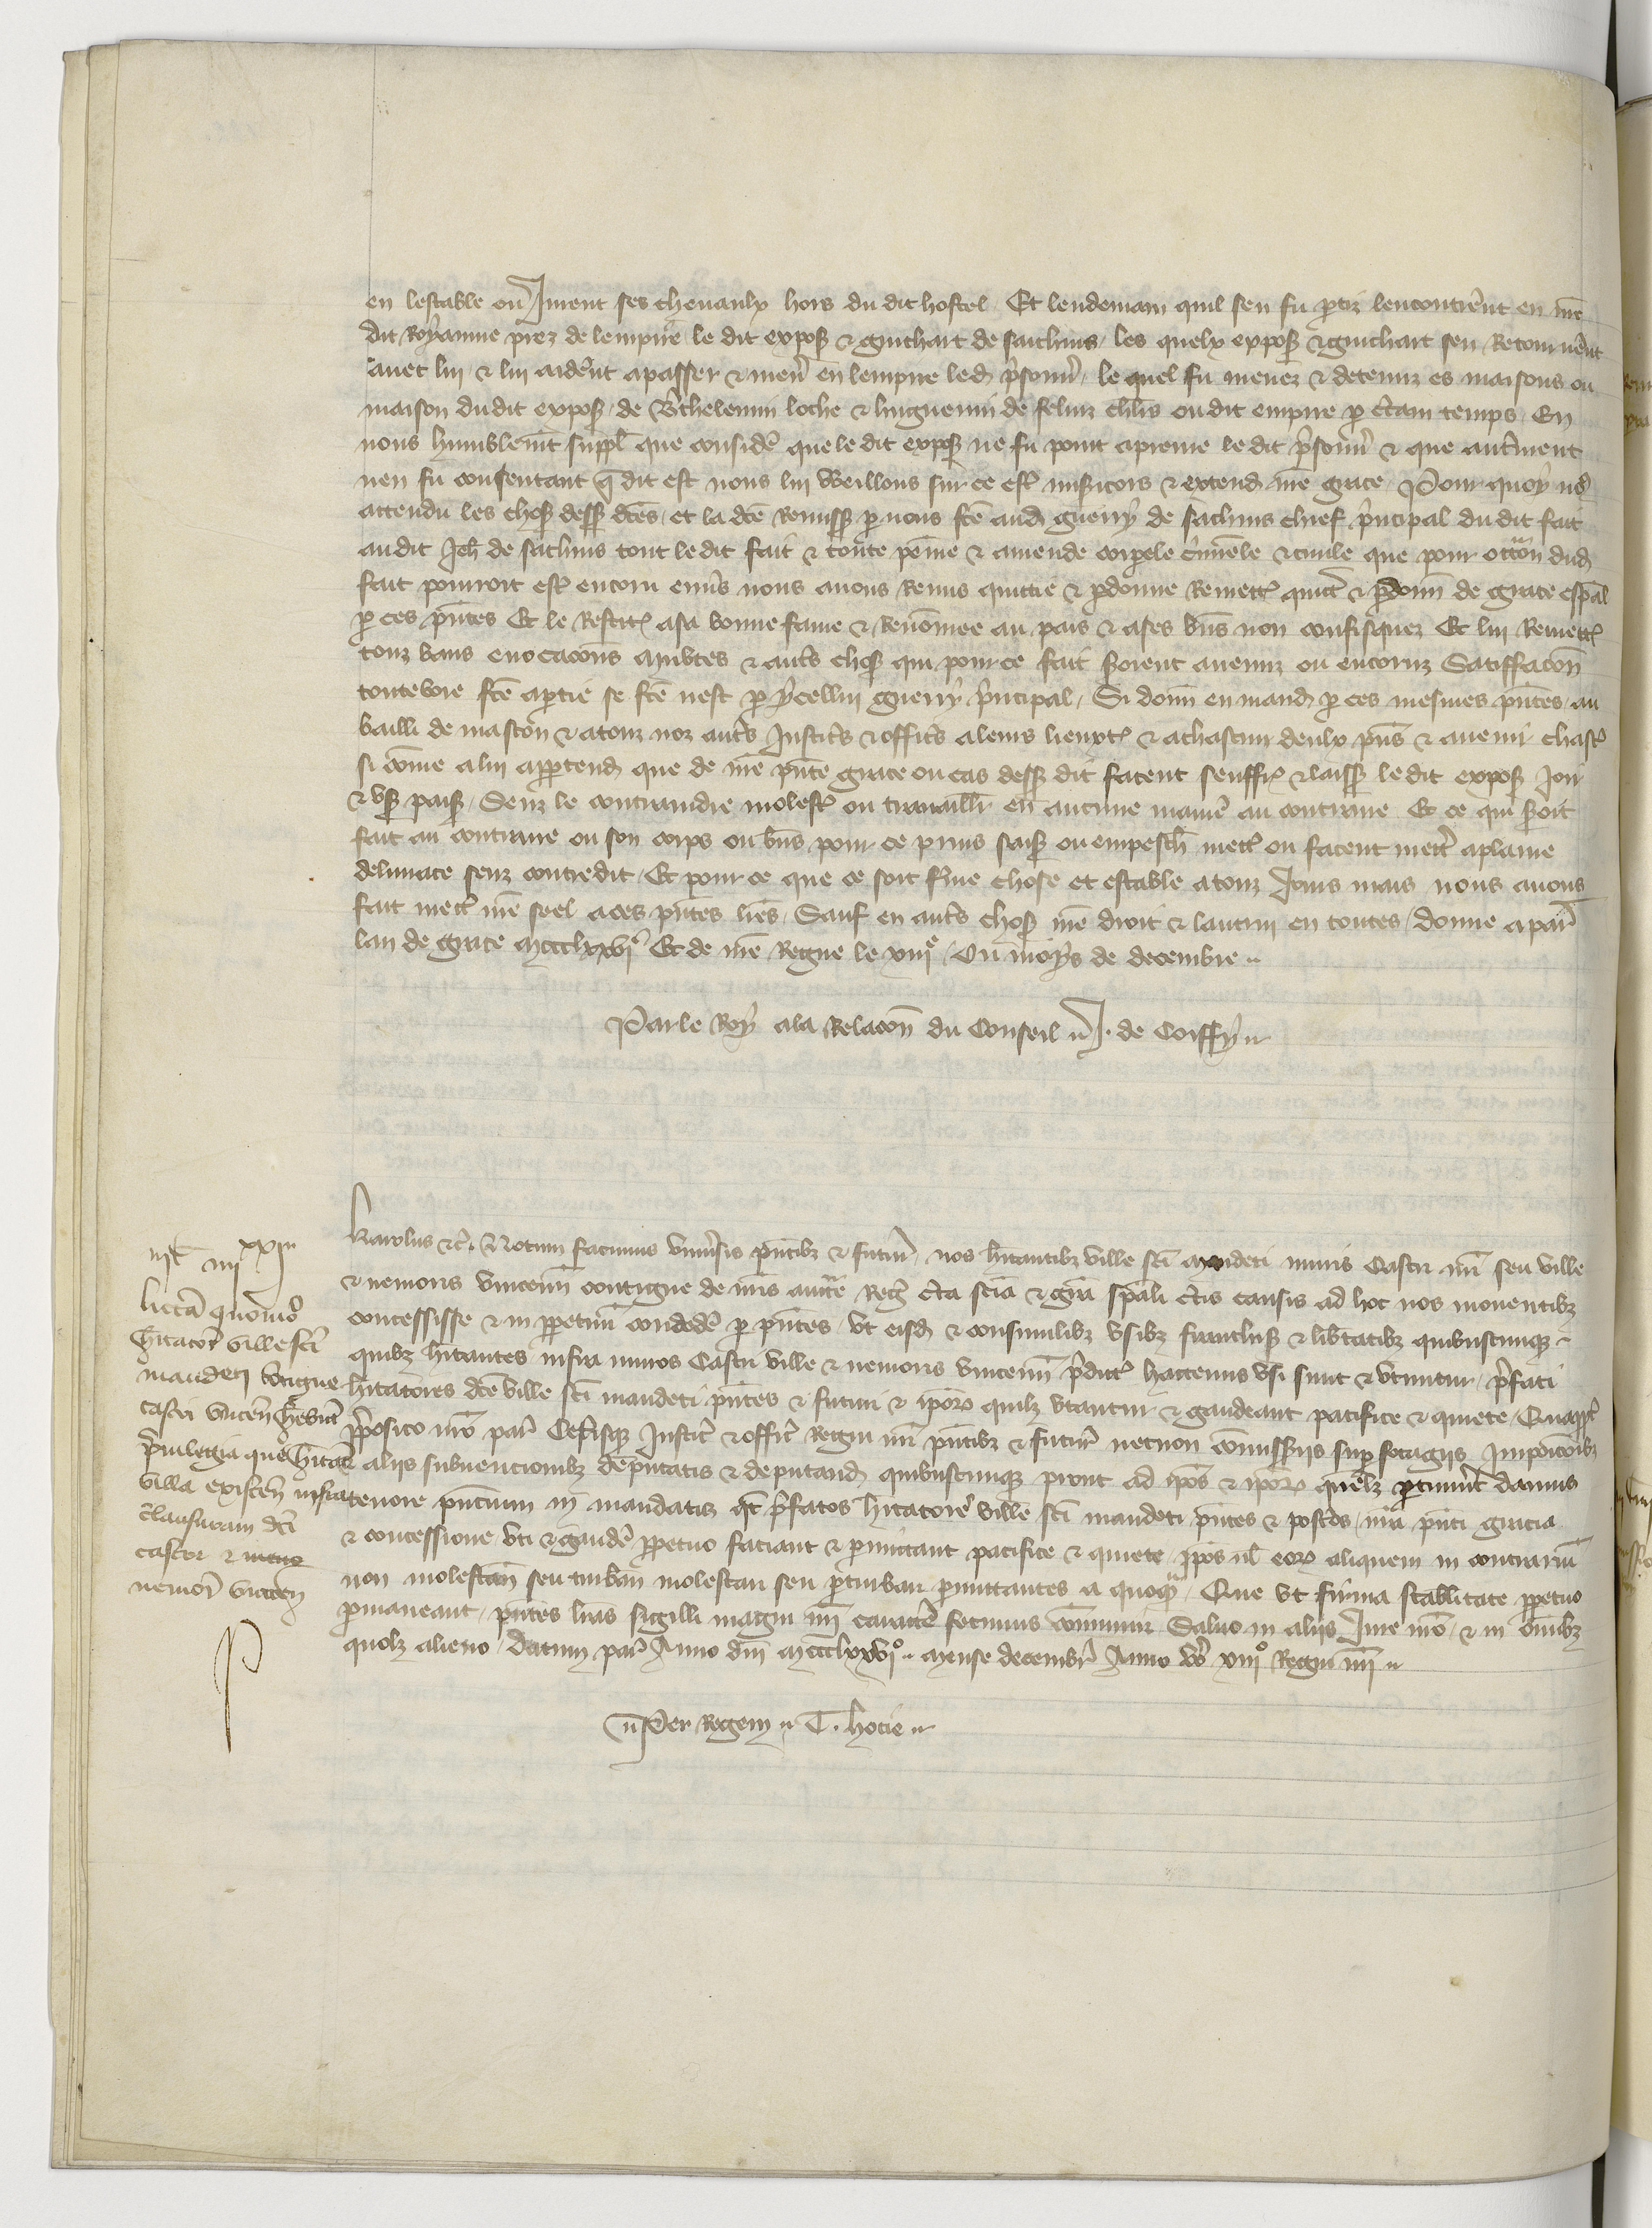 en lestable ou Iment ses chevaulx hors du dit hostel Et lendemain quil sen fu ptiz lencontrent en nre
dit Royaume prez de lempire le dit expos & guichart de saichins les quelx expos & guichart sen Retournerent
avec lui & lui aiderent a passer & mener en lempire led prisonn le quel fu menez & detenuz es maisons ou
maison dudit expos de Berthelemin loche & huguenin de feluiz chlrs ou dit empire p certain temps En
nous humblemt suppl que consider que le dit expos ne fu point a prenre le dit prisonn & que autrement
nen fu consentant q dit est nous lui Veillons sur ce estre misericors & extend nre grace Pour quoy nous
attendu les choses dess dictes et la dicte Remiss p nous fcte aud guerry de sachins chief principal du dit fait
au dit Jeh de sachins tout le dit fait & toute peine & amende corporele criminele & civile que pour occon dud
fait pourroit estre encoru envers nous avons Remis quittie & pdonne Remett quitt & pdonn de grace espal
p ces pntes Et le Restit a sa bonne fame & Renommee au pais & a ses biens non confisquez Et lui Remett
touz bans evocacons & autres choses qui pour ce fait seroient avenuz ou encoruz Satiffacon
toutevoie fcte a partie se fcte nest p ycellui guerry principal Si donn en mand p ces mesmes pntes au
bailli de mascon & a touz noz autres Justiciers & officiers a leurs lieuxt & a chascun deulx pns & avenir chast
si comme a lui apptend que de nre pnte grace ou cas dess dit facent seuffr & laiss le dit expos Joir
& us paisib Senz le contraindre molest ou travaill en aucune maniere au contraire Et ce qui seroit
fait au contraire ou son corps ou biens pour ce prins saisis ou empesch mett ou facent mettre a plaine
delivrance senz contredit Et pour ce que ce soit ferme chose et estable a touz Jours mais nous avons
fait mett nre seel a ces pntes lres Sauf en autres choses nre droit & lautrui en toutes donne a paris
lan de grace mccclxxvi Et de nre Regne le xiiie Ou moys de decembre
Par le Roy a la Relacon du Conseil J. de Coiffy
Karolus &c. Notum facimus universis pntibz & futuris nos hitantibz ville sci mandeti nimis Castri nri seu ville
& nemoris vincenn contigue de nris auctte Reg certa scia & gra spali certis causis ad hoc nos moventibz
concessisse & in ppetuum concedere p pntes Ut eisd & consimilibz usibz franchis & libtatibz quibuscunque
quibz hitantes infra muros Castri ville & nemoris vincenn pdict hactenus usi sunt & utuntur pfati
hitatores dce ville sci mandeti pntes & futuri & ipor quilz utantur & gaudeant pacifice & quiete Quappt
pposito nro par Ceterisque Justic & offic Regni nri pntibz & futur necnon commissariis sup focagiis Imposicionibz
aliis subvencionibz deputatis & deputand quibuscunque prout ad ipos & ipor quemlz ptinuerit damus
tenore pncium in mandatis qt pfatos hitatores ville sci mandeti pntes & posteros nra pnti gracia
& concessione uti & gaudere ppetuo faciant & pmittant pacifice & quiete ipos vel eor aliquem in contrarium
non molestan seu turban molestari seu pturbari pmittantes a quoq Que ut firma stabilitate ppetuo
pmaneant pntes lras sigilli magni nri caractere fecimus communiri Salvo in aliis Jure nro & in omnibz
quolz alieno datum par Anno dni mccclxxvio mense decembr Anno vero xiiio Regni nri
Per Regem T. hocie
iijc iiijxx iij
littera quomodo
hitatores ville sci
mandeti contigue
castri vincen hebunt
privilegia que hitantes
villa existen infra
clausuram dci
castri & nemo
nemoris vincen